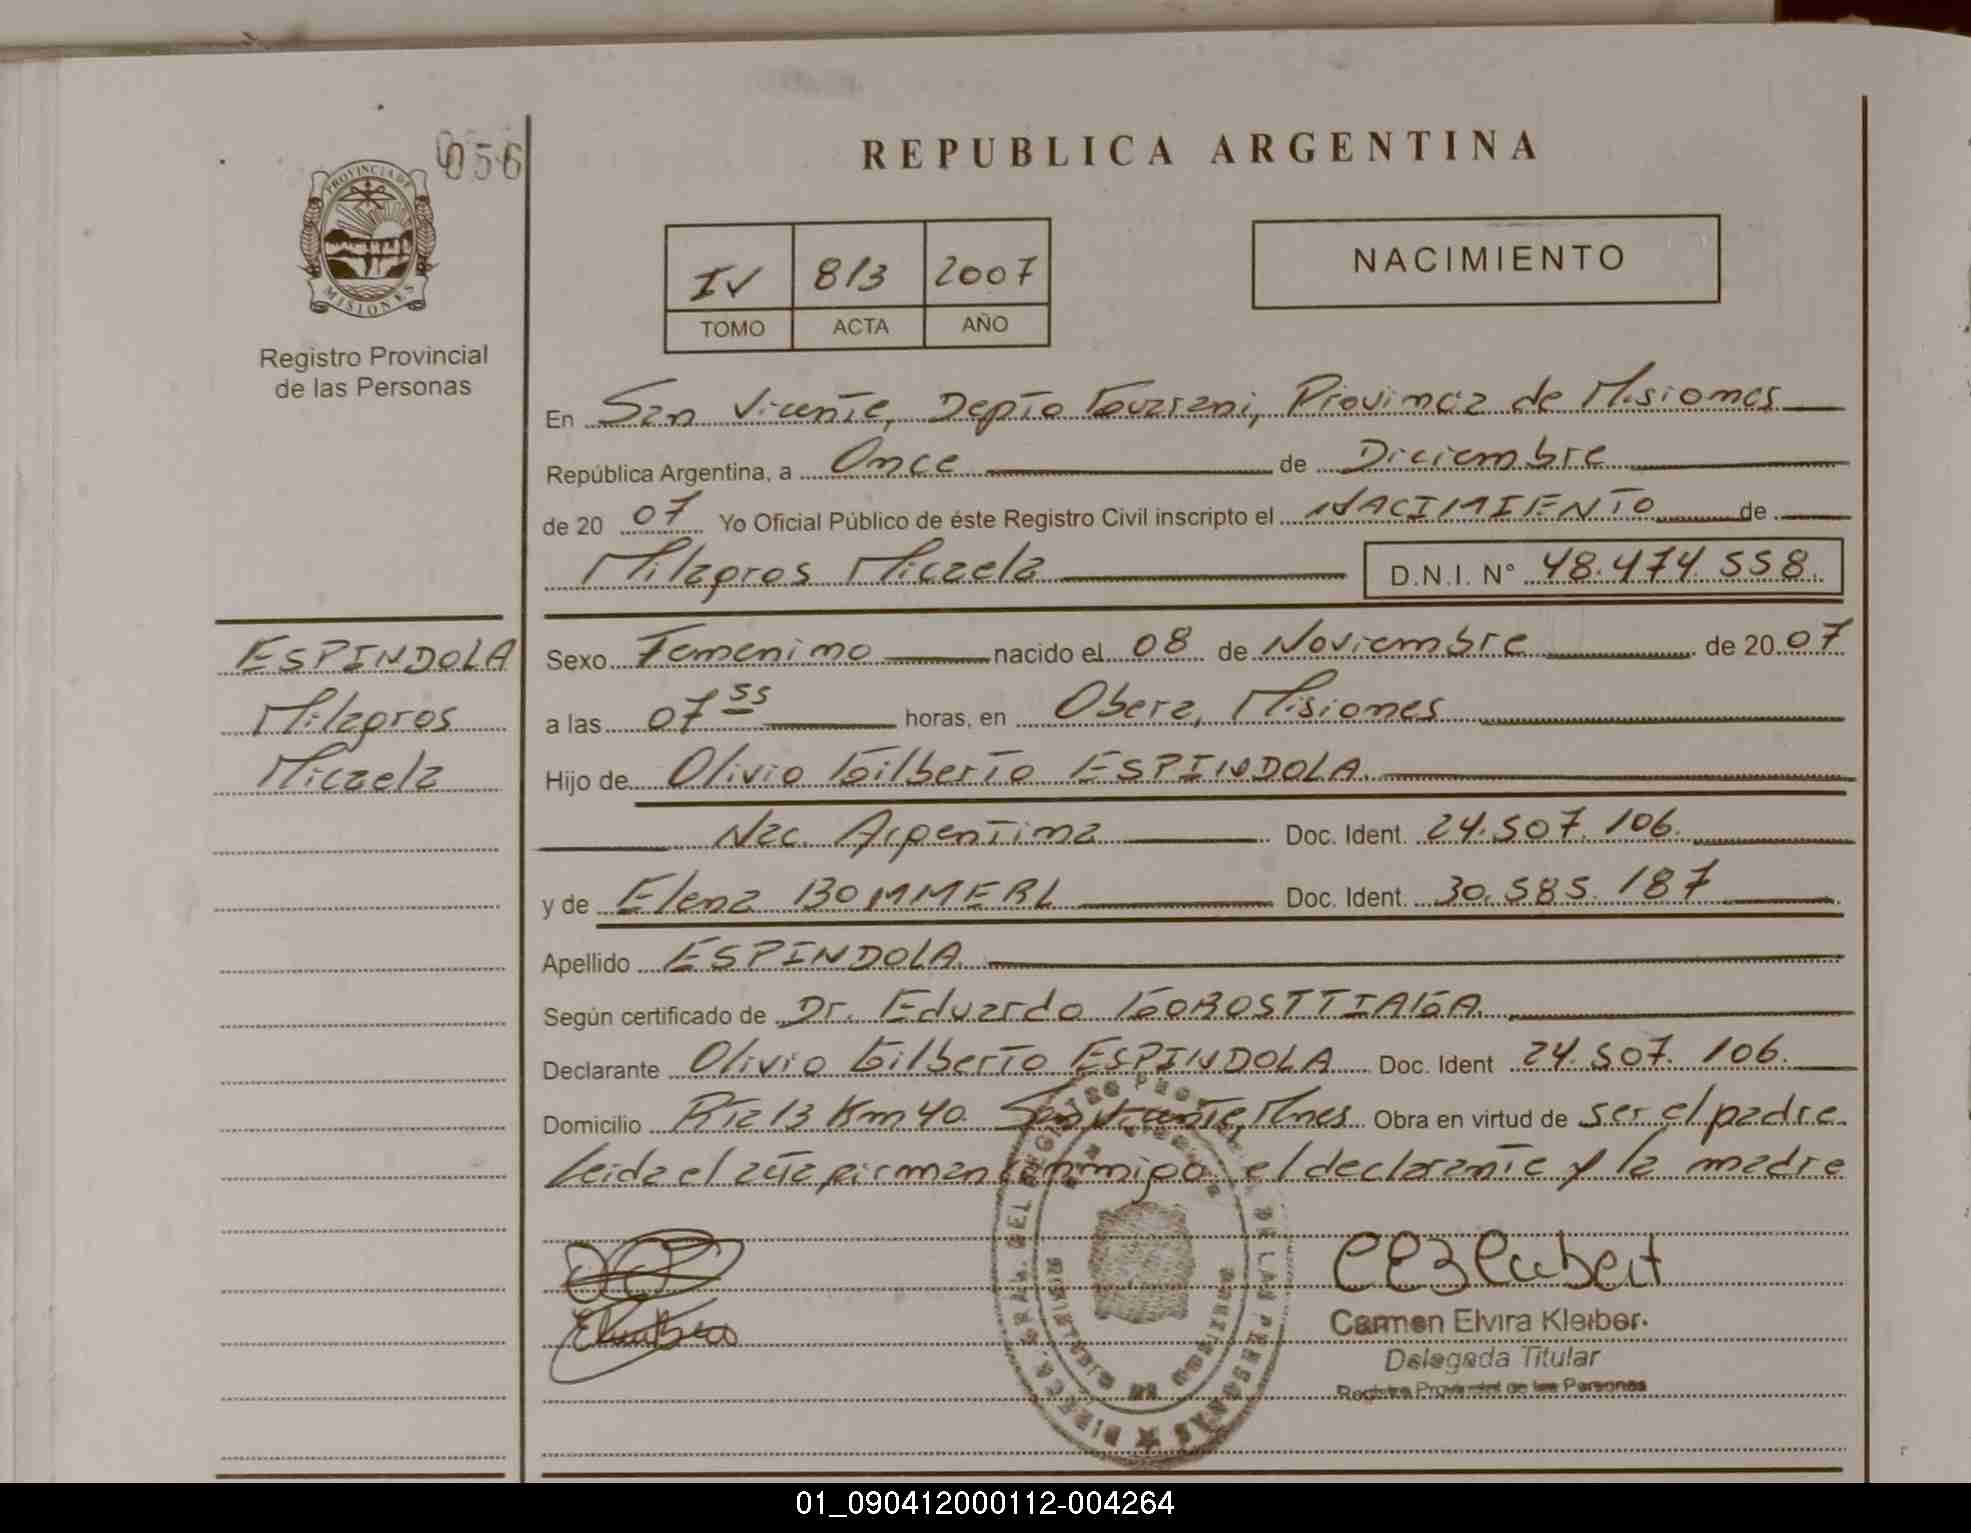 056
PROVINCIA DE
MISIONES
Registro Provincial
de las Personas
REPUBLICA ARGENTINA
IV 813 2007
TOMO ACTA AÑO
NACIMIENTO
En San Vicente, Depto Guarani, Provincia de Misiones
República Argentina, a Once de Diciembre
de 20 07 Yo Oficial Público de éste Registro Civil inscripto el NACIMIENTO de
Milagros Micaela D.N.I. N° 48.474.558.
ESPINDOLA
Milagros
Micaela
Sexo Femenino nacido el 08 de Noviembre de 20 07
a las 07 55 horas, en Obera, Misiones
Hijo de Olivio Gilberto ESPINDOLA.
Nac. Argentina Doc. Ident. 24.507.106.
y de Elena BOMMERL Doc. Ident. 30.585.187
Apellido ESPINDOLA
Según certificado de Dr. Eduardo GOROSTTIAGA.
Declarante Olivio Gilberto ESPINDOLA Doc. Ident 24.507.106.
Domicilio Rta 13 Km 40. San Vicente, Mnes Obra en virtud de ser el padre
Leida el acta firman conmigo el declarante y la madre
Carmen Elvira Kleiber.
Delegada Titular
Registro Provincial de las Personas
01_090412000112-004264